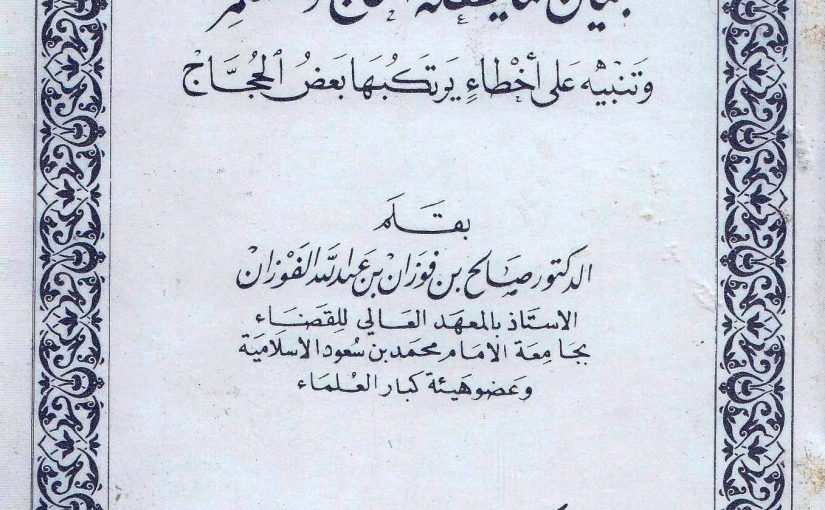 بيان ما يفعله الحاج والمعتمر
وَتَنبيْه عَلى أخْطاءٍ يَرتَكبُهَا بَعضُ الحُجَّاج
بقَلَم
الدكتور صَالح بن فوزان بن عَبدالله الفَوزان
الاستَاذ بالمعهَد العَالي للقضَاء
بجَامِعَة الامَام محمد بن سعُود الاسلاميَة
وعَضو هَيئة كبار العُلمَاء